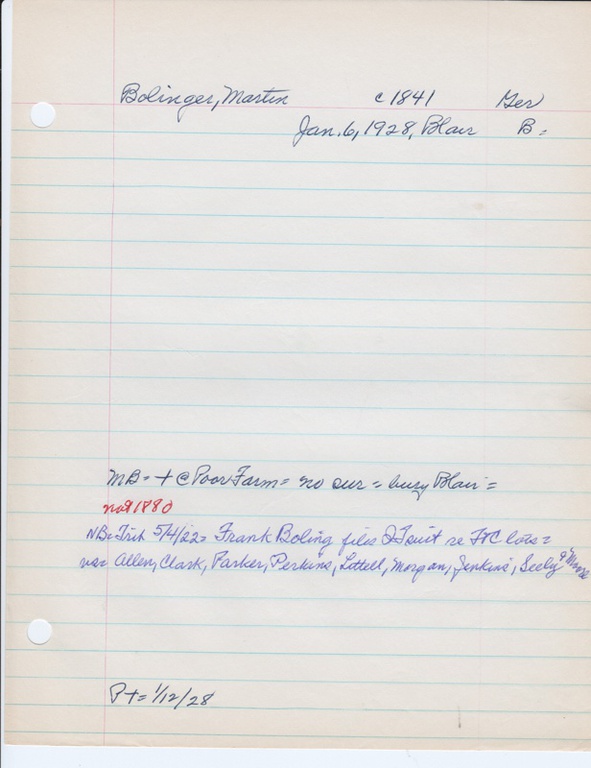 Bolinger, Martin c1841 Ger
Jan. 6, 1928, Blair B=
MB= + @ Poor Farm= no sur = bury Blair =
not 1880
NB= Trib 5/4/22= Frank Boling files QT suit re FtC lots=
vs= Allen, Clark, Parker, Perkins, Littell, Morgan, Jenkins, Seely & Moore
P+= 1/12/28